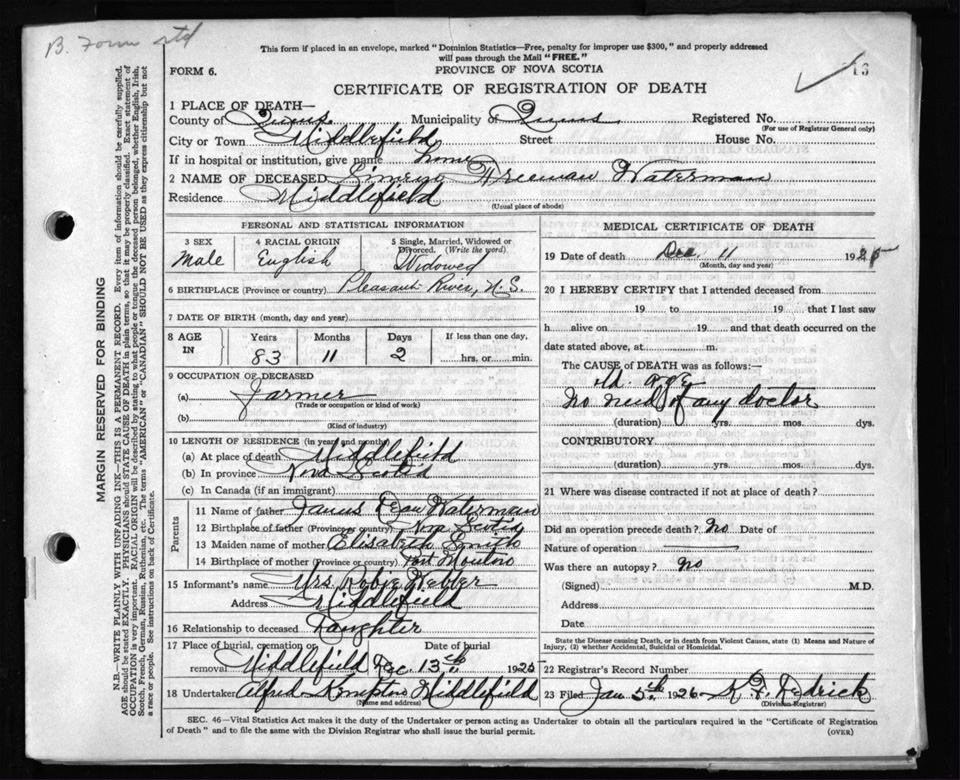 B. Form std
This form if placed in an envelope, marked "Dominion Statistics—Free, penalty for improper use $300," and properly addressed
will pass through the Mail "FREE."
FORM 6.
PROVINCE OF NOVA SCOTIA
CERTIFICATE OF REGISTRATION OF DEATH
13
1 PLACE OF DEATH—
County of Queens Municipality of Queens Registered No.
(For use of Registrar General only)
City or Town Middlefield Street House No.
If in hospital or institution, give name home
2 NAME OF DECEASED Freeman Waterman
Residence Middlefield
(Usual place of abode)
PERSONAL AND STATISTICAL INFORMATION
3 SEX Male
4 RACIAL ORIGIN English
5 Single, Married, Widowed or Divorced. (Write the word) Widowed
6 BIRTHPLACE (Province or country) Pleasant River, N.S.
7 DATE OF BIRTH (month, day and year)
8 AGE IN Years 83 Months 11 Days 2 If less than one day, hrs. or min.
9 OCCUPATION OF DECEASED
(a) Farmer
(Trade or occupation or kind of work)
(b)
(Kind of industry)
10 LENGTH OF RESIDENCE (in years and months)
(a) At place of death Middlefield
(b) In province Nova Scotia
(c) In Canada (if an immigrant)
Parents
11 Name of father James Dean Waterman
12 Birthplace of father (Province or country) Nova Scotia
13 Maiden name of mother Elisabeth Smith
14 Birthplace of mother (Province or country) Port
15 Informant's name Mrs Robie
Address Middlefield
16 Relationship to deceased Daughter
17 Place of burial, cremation or removal Middlefield Date of burial Dec. 13th 1925
18 Undertaker Alfred Middlefield
(Name and address)
MEDICAL CERTIFICATE OF DEATH
19 Date of death Dec 11 1925
(Month, day and year)
20 I HEREBY CERTIFY that I attended deceased from
19 to 19 , that I last saw
h alive on 19 and that death occurred on the
date stated above, at m.
The CAUSE OF DEATH was as follows:—
old age
no need of any doctor
(duration) yrs. mos. dys.
CONTRIBUTORY
(duration) yrs. mos. dys.
21 Where was disease contracted if not at place of death?
Did an operation precede death? no Date of
Nature of operation
Was there an autopsy? no
(Signed) M.D.
Address
Date
State the Disease causing Death, or in death from Violent Causes, state (1) Means and Nature of
Injury, (2) whether Accidental, Suicidal or Homicidal.
22 Registrar's Record Number
23 Filed Jan 5th 1926
(Division Registrar)
SEC. 46—Vital Statistics Act makes it the duty of the Undertaker or person acting as Undertaker to obtain all the particulars required in the "Certificate of Registration
of Death" and to file the same with the Division Registrar who shall issue the burial permit.
(OVER)
MARGIN RESERVED FOR BINDING
N.B.—WRITE PLAINLY WITH UNFADING INK—THIS IS A PERMANENT RECORD. Every item of information should be carefully supplied.
AGE should be stated EXACTLY. PHYSICIANS should STATE CAUSE OF DEATH in plain terms, so that it may be properly classified. Exact statement of
OCCUPATION is very important. RACIAL ORIGIN will be described by stating to what people or tongue the deceased person belonged, whether English, Irish,
Scotch, French, German, Russian, Ruthenian, etc. The terms "AMERICAN" or "CANADIAN" SHOULD NOT BE USED as they express citizenship but not
a race or people. See instructions on back of Certificate.